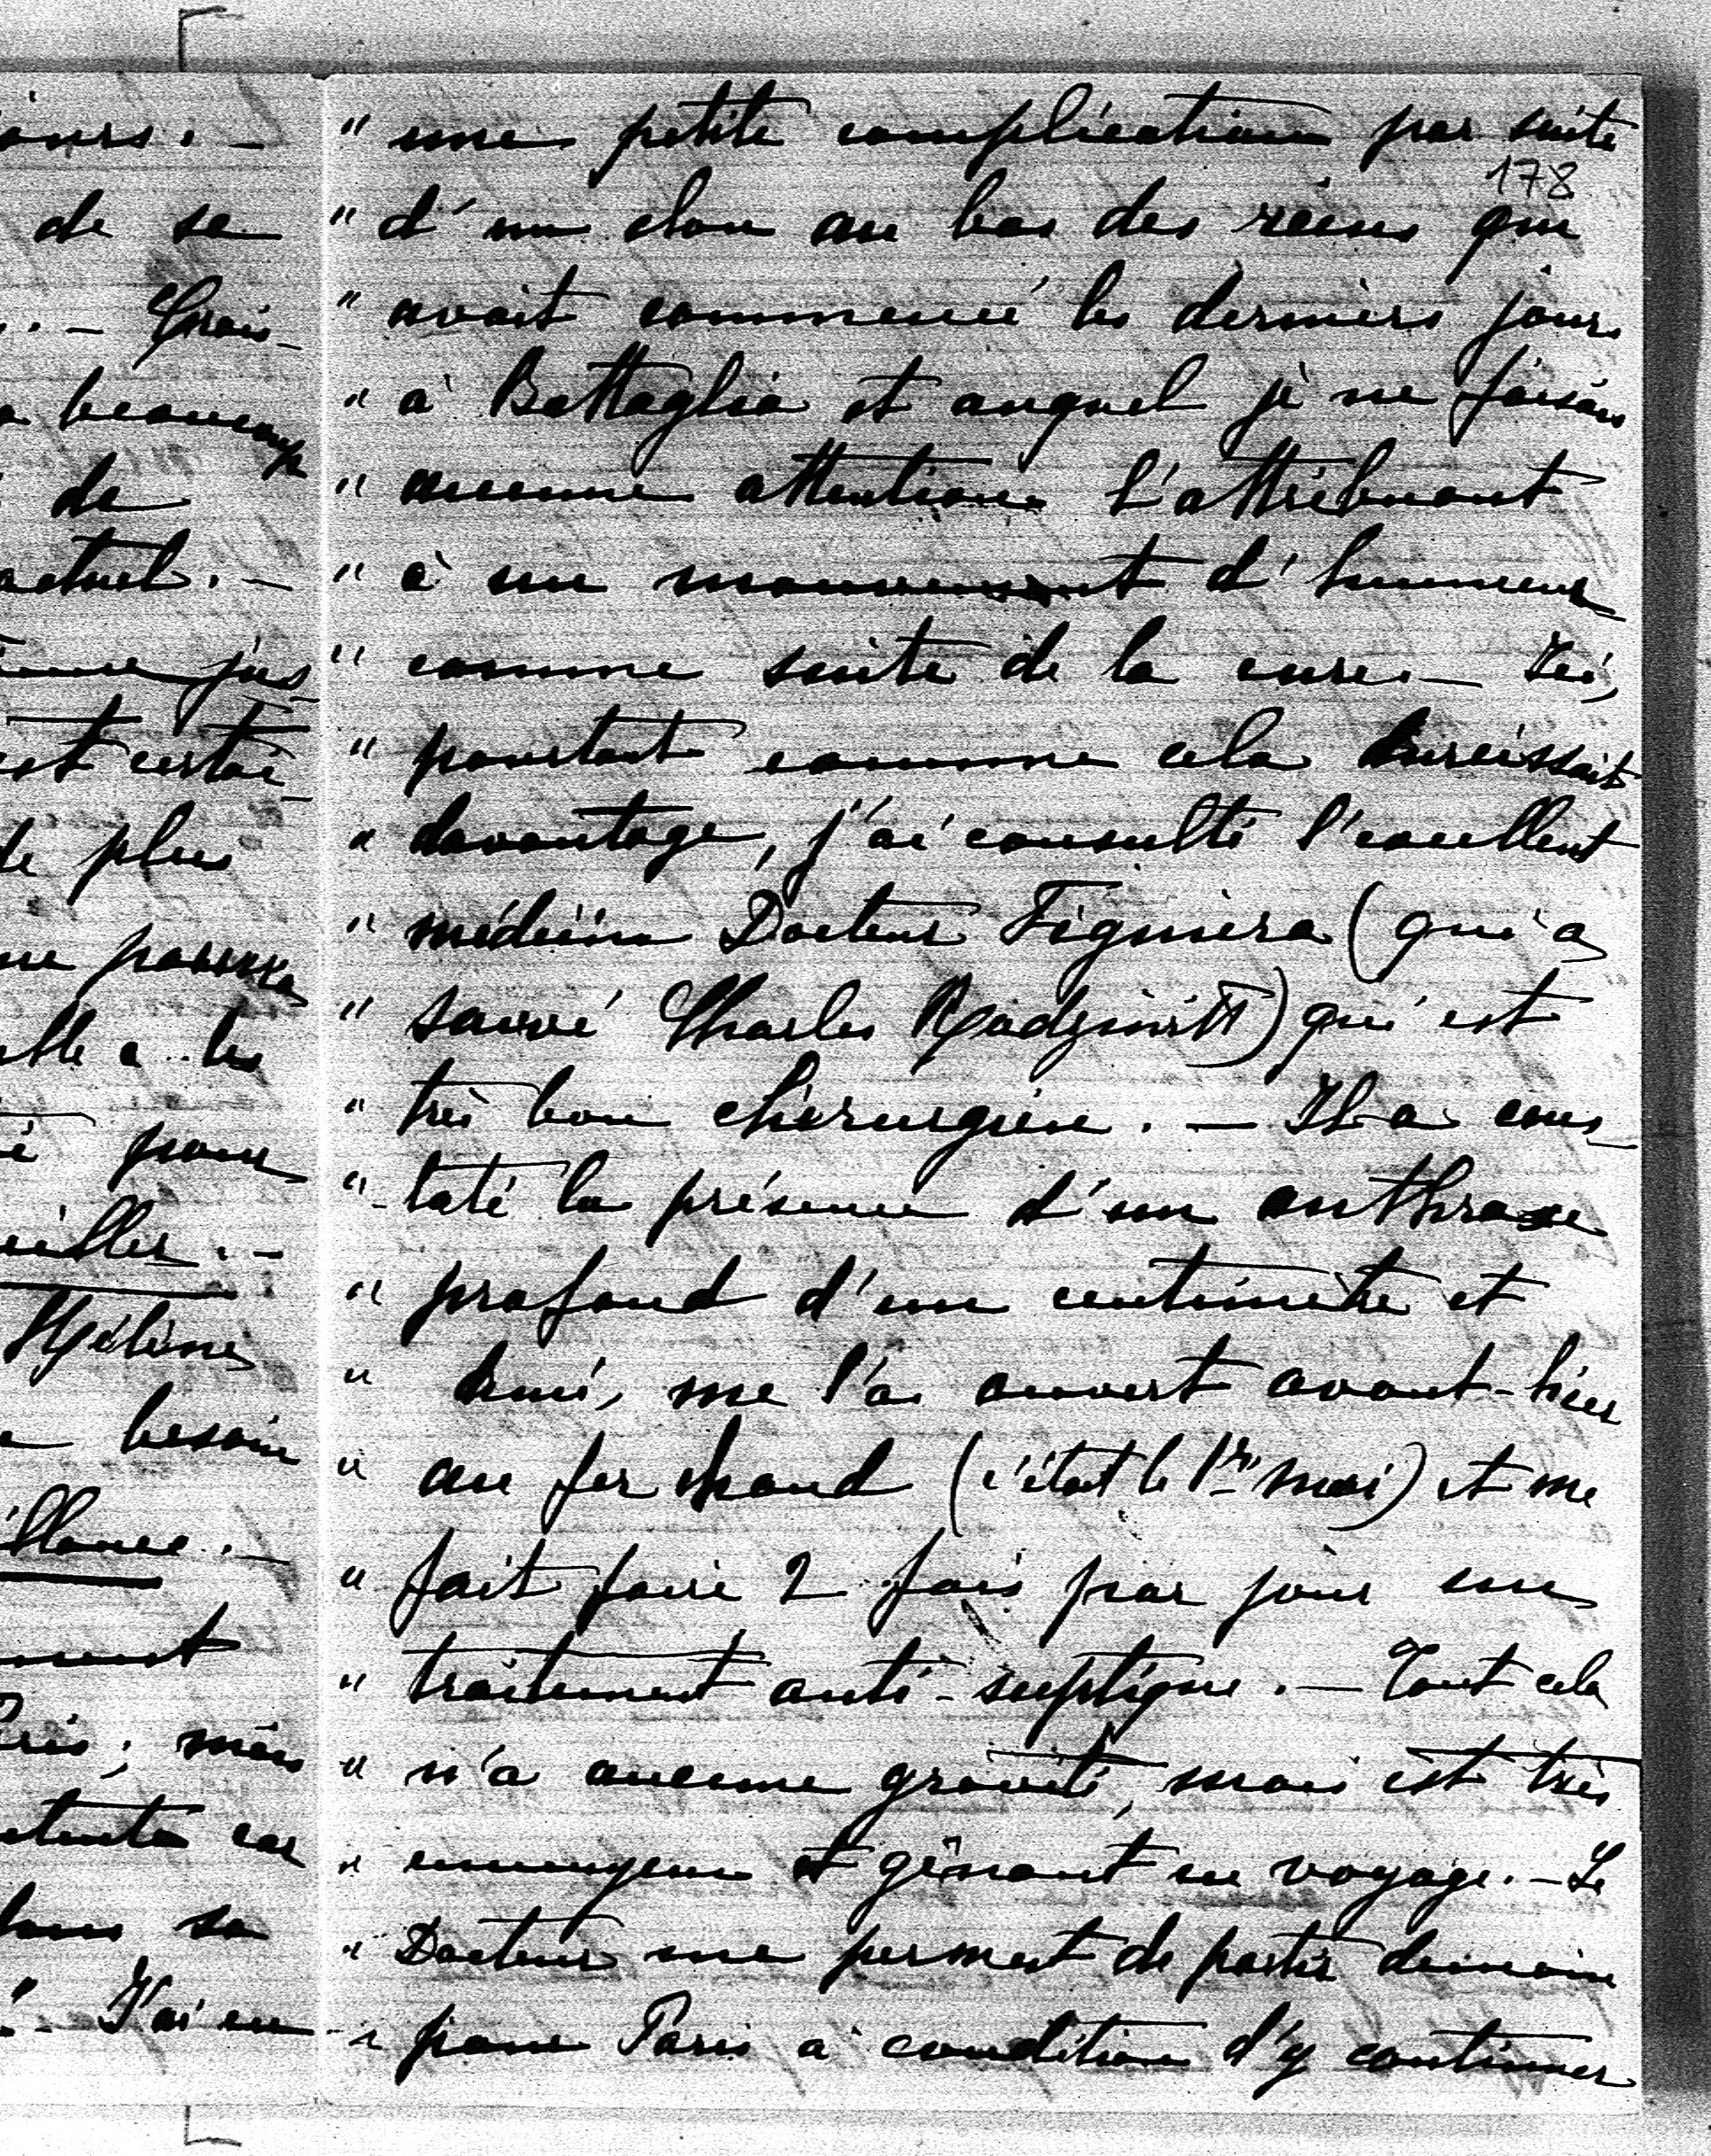 ours. –
de se
. – Crois-
beaucoup
de
actuel. –
jus-
est certai-
de plus
me pourra
elle a les
pour
eiller. –
Hélène
besoin
illance. –
ment
Paris; mais
car
dans sa
" – J'ai eu
178
" une petite complication par suite
" d'un clou au bas des reins qui
" avait commencé les derniers jours
" à Battaglia et auquel je ne faisais
" aucune attention l'attribuant
" à un mouvement d'humeur
" comme suite de la cure. – Ici,
" pourtant comme cela durcissait
" davantage, j'ai consulté l'excellent
" médecin Docteur Figuiera (qui a
" sauvé Charles Radziwill) qui est
" très bon chirurgien. – Il a cons-
" -taté la présence d'un anthrax
" profond d'un centimètre et
" demi, me l'a ouvert avant-hier
" au fer chaud (c'était le 1er mai) et me
" fait faire 2 fois par jour un
" traitement anti-septique. – Tout cela
" n'a aucune gravité, mais est très
" ennuyeux et gênant en voyage. – Le
" Docteur me permet de partir demain
" pour Paris à condition d'y continuer